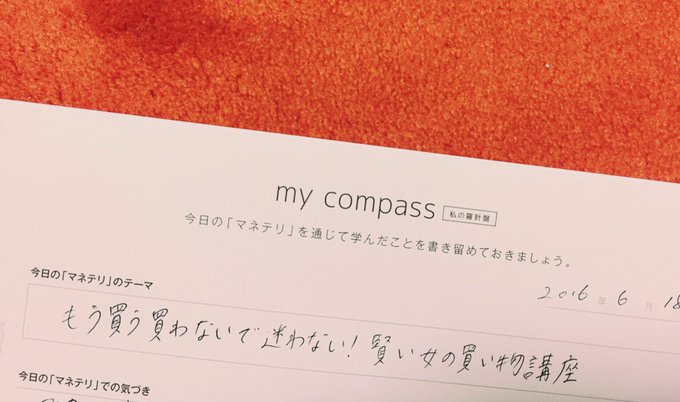 my compass 私の羅針盤
今日の「マネテリ」を通じて学んだことを書き留めておきましょう。
2016 年 6 月 18
今日の「マネテリ」のテーマ
もう買う買わないで迷わない! 賢い女の買い物講座
今日の「マネテリ」での気づき